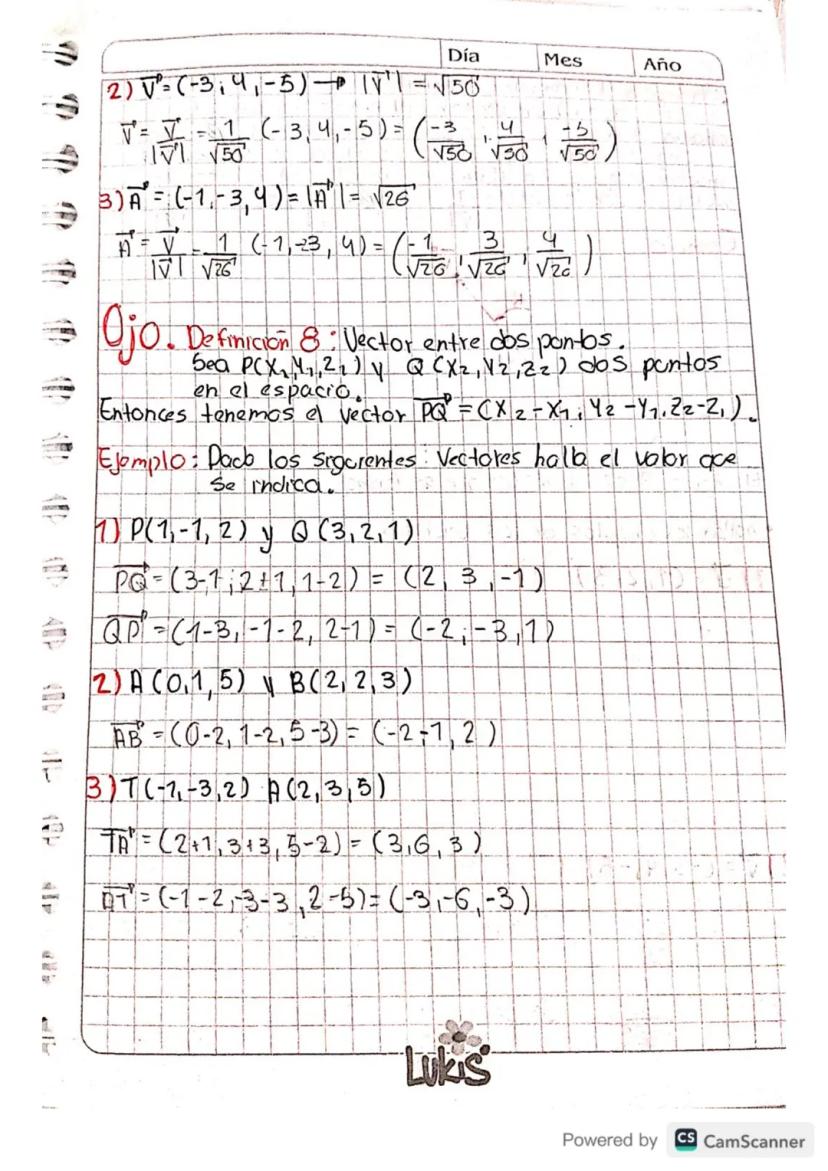 Día Mes Año
2) V⃗ = (-3, 4, -5) → |V⃗| = √50
V⃗ = V⃗/|V⃗| = 1/√50 (-3, 4, -5) = (-3/√50, 4/√50, -5/√50)
3) A⃗ = (-1, -3, 4) = |A⃗| = √26
A⃗ = V⃗/|V⃗| = 1/√26 (-1, -3, 4) = (-1/√26, 3/√26, 4/√26)
Ojo. Definición 8: Vector entre dos pontos.
Sea P(X₁, Y₁, Z₁) y Q(X₂, Y₂, Z₂) dos puntos
en el espacio.
Entonces tenemos el vector PQ⃗ = (X₂-X₁, Y₂-Y₁, Z₂-Z₁).
Ejemplo: Dado los siguientes vectores halla el valor que
se indica.
1) P(1, -1, 2) y Q(3, 2, 1)
PQ⃗ = (3-1, 2+1, 1-2) = (2, 3, -1)
QP⃗ = (1-3, -1-2, 2-1) = (-2, -3, 1)
2) A(0, 1, 5) y B(2, 2, 3)
AB⃗ = (0-2, 1-2, 5-3) = (-2, -1, 2)
3) T(-1, -3, 2) A(2, 3, 5)
TA⃗ = (2+1, 3+3, 5-2) = (3, 6, 3)
AT⃗ = (-1-2, -3-3, 2-5) = (-3, -6, -3)
LUKIS
Powered by CS CamScanner